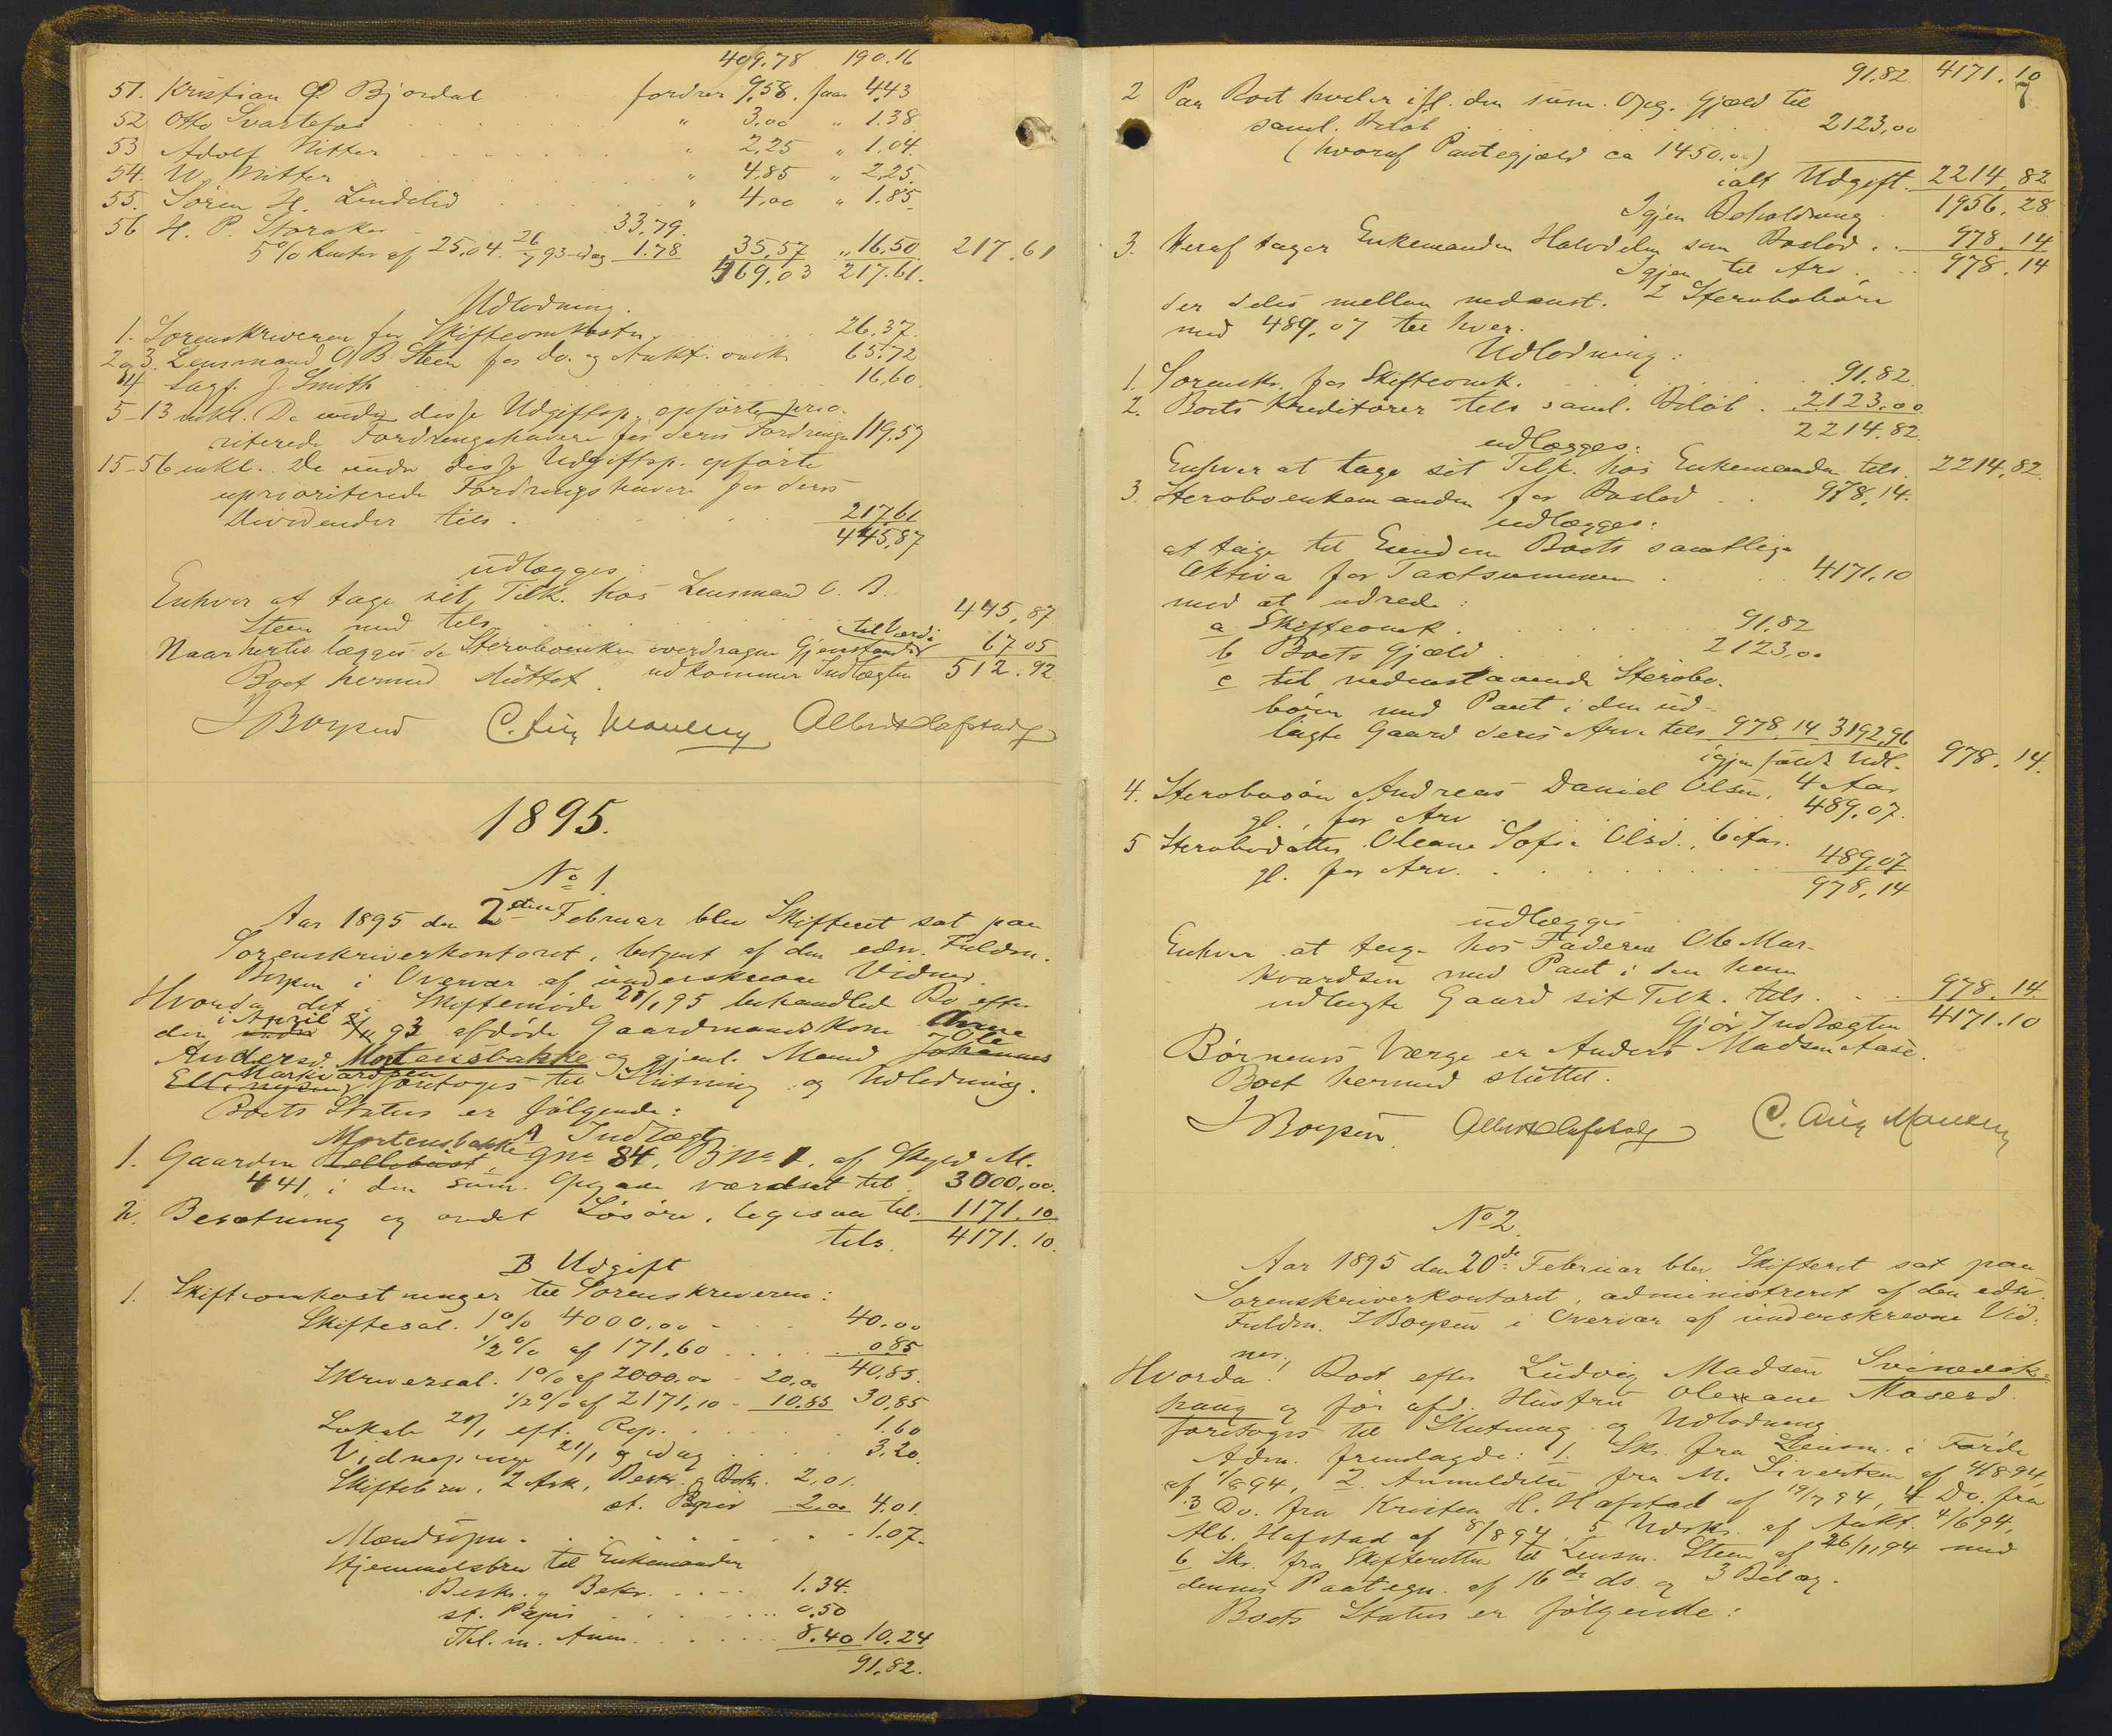 409.78 190.16
51. Kristian O. Bjordal fordrer 9,58. faar 4.43
52 Otto Svartefos " 3.00 " 1.38
53 Adolf Nitter " 2,25 " 1.04
54. W. Nitter " 4.85 " 2,25
55. Sören H. Lindelid " 4,00 " 1.85
56 H. P. Storaker 33.79.
5% Renter af 25.04. 26/7 93 - idag 1.78 35,57 " 16.50 217.61
469,03 217.61.
Udlodning.
1. Sorenskriveren for Skifteomkostn. 26.37.
2 og 3. Lensmand O. B. Steen for do. og Aukt. omk. 65.72
4 Sagf. J. Smith 16.60.
5-13 inkl. De under disse Udgiftsp. opförte prio-
riterede Fordringshavere for deres Fordringer 119.57
15-56 inkl. De under disse Udgiftsp. opförte
uprioriterede Fordringshavere for deres
Dividender tils. 217.61
445,87
udlægges:
Enhver at tage sit Tilk. hos Lensmand O. B.
Steen med tils. 445,87
Naar hertil lægges de Sterboenken overdragne Gjenstande til Værdi 67 05
Boet hermed sluttet. udkommer Indtægten 512.92
J Boysen C. Aug Mauery Albert Hafstad
1895.
No 1.
Aar 1895 den 2den Februar blev Skifteret sat paa
Sorenskriverkontoret, betjent af den edsv. Fuldm.
Boysen i Overvær af underskrevne Vidner.
Hvorda det i Skiftemöde 28/1 95 behandled Bo efter
den i April 93 afdöde Gaardmandskone Anne
Andersd. Mortensbakke og gjenl. Mand Ole Johannes
Markvardsen Ellingsen foretoges til Slutning og Udlodning.
Boets Status er fölgende:
A Indtægt
1. Gaarden Mortensbakke Hellebust, Gno 84. Bno 1. af Skyld M.
4 41, i den sum. Opgave værdsat til 3000,00.
2. Besætning og andet Lösöre, ligesaa til 1171.10
tils. 4171.10.
B Udgift
1. Skifteomkostninger til Sorenskriveren:
Skiftesal. 1% 4000.00 40.00
1/2% af 171,60 0.85
40,85.
Skriversal. 1% af 2000.00 - 20.00
1/2% af 2171,10 - 10.85 30,85
Lokale 28/1 eft. Rep. 1.60
Vidnepenge 28/1 og idag 3.20
Skiftebrev. 2 Ark, Besk. og Bekr. 2.01.
st. Papir 2.00 4.01.
Mandsopn. 1.07.
Hjemmelsbrev til Enkemanden
Besk. og Bekr. 1.34.
st. Papir 0.50
Thl. m. Anm. 8.40 10.24
91.82.
91.82 4171.10
7
2 Paa Boet hviler ifl. den sum. Opg. Gjæld til
saml. Beløb 2123,00
(hvoraf Pantegjæld ca 1450.00)
ialt Udgift 2214,82
Igjen Beholdning 1956.28
3. Heraf tager Enkemanden Halvdelen som Boslod 978.14
Igjen til Arv 978.14
der deles mellem nedenst. 2 Sterbobörn
med 489.07 til hver.
Udlodning:
1. Sorenskr. for Skifteomk. 91.82
2. Boets Kreditorer tils saml. Beløb 2123,00
2214.82
udlægges:
Enhver at tage sit Tilk. hos Enkemanden tils. 2214,82.
3. Sterboenkemanden for Boslod 978,14.
udlægges:
at tage til Eiendom Boets samtlige
Aktiva for Taxtsummen 4171,10
mod at udrede:
a Skifteomk. 91.82
b Boets Gjæld 2123,00
c til nedenstaaende Sterbo-
börn med Pant i den ud-
lagte Gaard deres Arv tils 978.14 3192,96
igjen faldt Udl. 978.14.
4. Sterbosön Andreas Daniel Olsen, 4 Aar
gl. for Arv 489,07.
5 Sterbodatter Oleane Sofie Olsd., 6 Aar
gl. for Arv 489,07
978,14
udlægges
Enhver at tage hos Faderen Ole Mar-
kvardsen med Pant i den ham
udlagte Gaard sit Tilk. tils. 978.14.
Gjör Indtægten 4171.10
Børnenes Værge er Anders Madsen Aase.
Boet hermed sluttet.
J Boysen Albert Hafstad C. Aug Mauery
No 2.
Aar 1895 den 20de Februar blev Skifteret sat paa
Sorenskriverkontoret, administreret af den edsv.
Fuldm. J Boysen i Overvær af underskrevne Vid-
ner,
Hvorda: Boet efter Ludvig Madsen Svinevik-
haug og før afd. Hustru Oleane Mosesd.
foretoges til Slutning og Udlodning
Adm. fremlagde: 1. Skr. fra Lensm. i Förde
af 1/8 94, 2. Anmeldelse fra M. Sivertsen af 4/8 94,
3 Do. fra Kristen H. Hafstad af 19/7 94, 4 Do. fra
Alb. Hafstad af 8/8 94, 5 Udskr. af Aukt. 4/6 94,
6 Skr. fra Skifteretten til Lensm. Steen af 26/11 94 med
dennes Paategn. af 16de ds. og 3 Bilag.
Boets Status er fölgende: